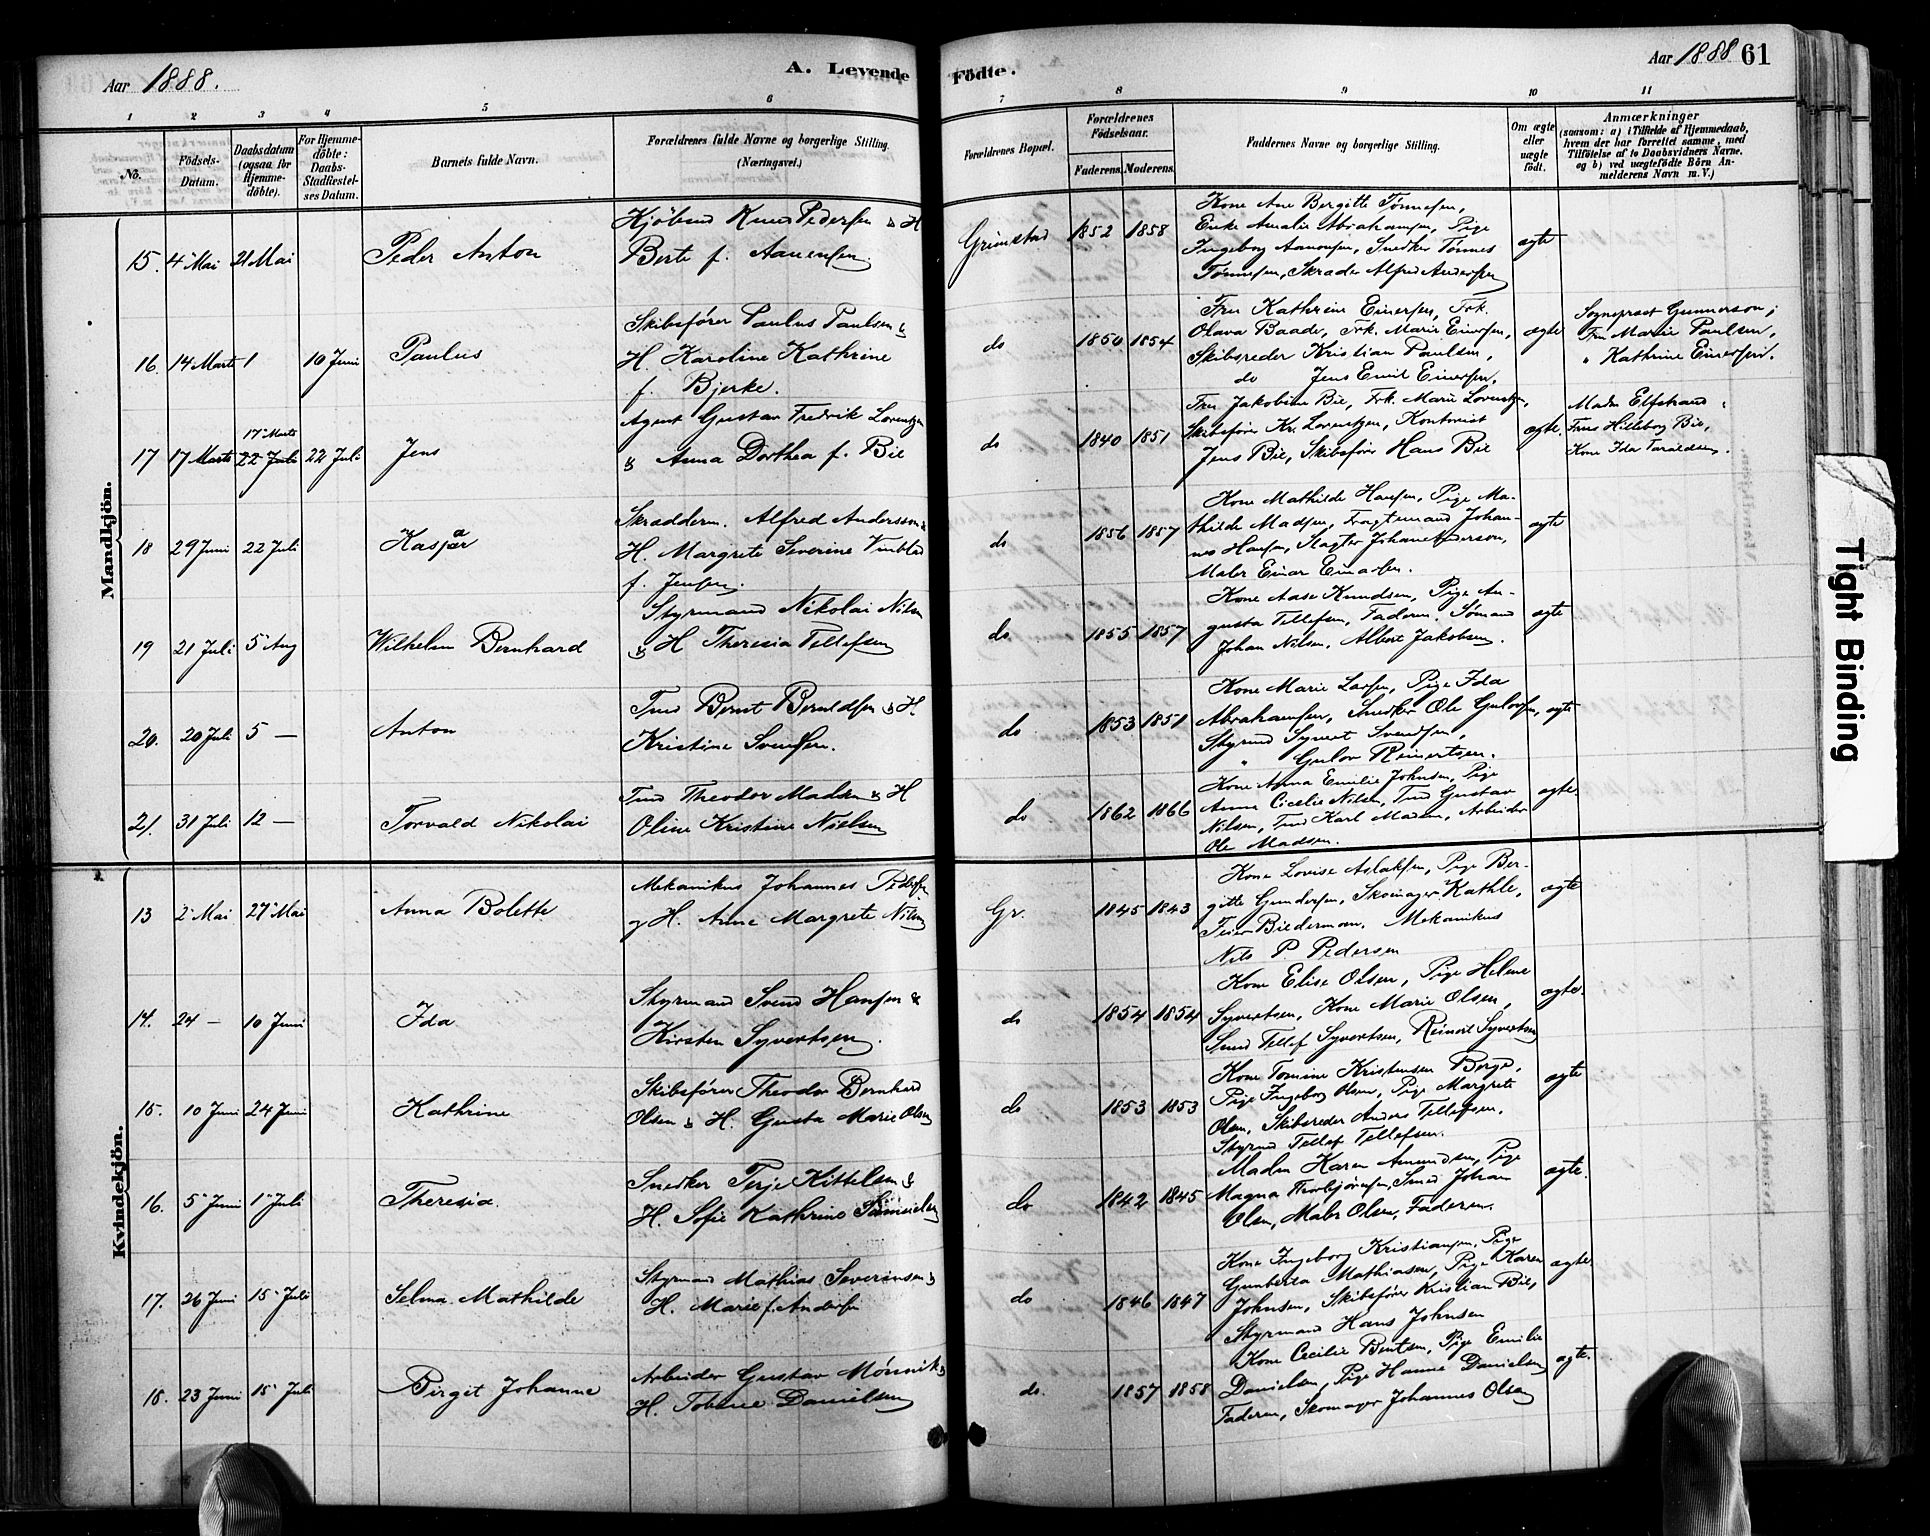 Aar 1888.
A. Levende Födte.
Aar 1888 61
1 2 3 4 5 6 7 8 9 10 11
No.
Födsels-Datum.
Daabsdatum (ogsaa for Hjemmedöbte).
For Hjemmedöbte: Daabs-Stadfæstelses Datum.
Barnets fulde Navn.
Forældrenes fulde Navne og borgerlige Stilling.
(Næringsvei.)
Forældrenes Bopæl.
Forældrenes Födselsaar.
Faderens. Moderens.
Faddernes Navne og borgerlige Stilling.
Om ægte eller uægte födt.
Anmærkninger
(saasom: a) i Tilfælde af Hjemmedaab, hvem der har forrettet samme, med Tilföielse af to Daabsvidners Navne, og b) ved uægtefödte Börn Anmelderens Navn m. V.)
Mandkjön.
15. 4 Mai 21 Mai Peder Anton
Knud Pedersen & H
Berte f. Aanensen
Grimstad 1852 1858
Kone Ane Bergitte Tønnesen,
Enke Amalie Abrahamsen, Pige
Ingeborg Aanonsen, Snedker Tønnes
Tønnesen, Skræder Alfred Andersen
ægte
16. 14 Marts 1 10 Juni Paulus
Skibsfører Paulus Paulsen &
H. Karoline Kathrine
f. Bjerke.
do 1850 1854
Fru Kathrine Einersen, Frk.
Olava Baade, Frk. Marie Einersen,
Skibsreder Kristian Paulsen,
do Jens Emil Einersen.
ægte
Sognepræst Gunnerson;
Fru Marie Paulsen,
" Kathrine Einersen.
17 17 Marts 17 Marts 22 Juli 22 Juli Jens
Agent Gustav Fredrik Lorentzen
& Anna Dorthea f. Bie
do 1840 1851
Fru Jakobine Bie, Frk. Marie Lorentzen,
Skibsfører Kr. Lorentzen, Kontorist
Jens Bie, Skibsfører Hans Bie
ægte.
Madm Elfstrand,
Frus Hilleborg Bie,
Kone Ida Taraldsen.
18 29 Juni 22 Juli Kaspar
a
Skrædderm. Alfred Andersson &
H. Margrete Severine
f. Jensen.
do 1856 1857
Kone Mathilde Hansen, Pige Ma-
thilde Madsen, Fragtemand Johan-
nes Hansen, Slagter Johan Anderson,
Maler Einar Einarsen.
ægte
19 21 Juli 5 Aug Wilhelm Bernhard
Styrmand Nikolai Nilsen
& H Theresia Tellefsen
do 1855 1857
Kone Aase Knudsen, Pige Au-
gusta Tellefsen, Faderen. Sømand
Johan Nilsen, Albert Jakobsen.
ægte
20. 20 Juli 5 — Anton
Tmd Bernt Berntdsen & H.
Kristine Svendsen.
do 1853 1851
Kone Marie Larsen, Pige Ida
Abrahamsen, Snedker Ole Gulovsen,
Styrmd Syvert Svendsen,
" Gulov Reinertsen.
ægte
21. 31 Juli 12 — Torvald Nikolai
Tmd Theodor Madsen & H
Oline Kristine Nielsen
do 1862 1866
Kone Anna Emilie Johnsen, Pige
Anna Cecelie Nilsen, Tmd Gustav
Nilsen, Tmd Karl Madsen, Arbeider
Ole Madsen.
ægte.
Kvindekjön.
13 2 Mai 27 Mai Anna Bolette
Mekanikus Johannes Pedersen
g H. Anne Margrete Nilsen
Gr. 1845 1843
Kone Lovise Aslaksen, Pige Ber-
gitte Gundersen, Skomager Kathle,
Feier Biedermann, Mekanikus
Nils P. Pedersen
ægte
14. 24 — 10 Juni Ida
Styrmand Svend Hansen &
Kirsten Syvertsen.
do 1854 1854
Kone Elise Olsen, Pige Helene
Syvertsen, Kone Marie Olsen,
Smed Tellef Syvertsen, Reinert Syvertsen
ægte.
15. 10 Juni 24 Juni Kathrine
Skibsfører Theodor Bernhard
Olsen & H. Gusta Marie Olsen
do 1853 1853
Kone Tomine Kristensen Berge,
Pige Ingeborg Olsen, Pige Margrete
Olsen, Skibsreder Anders Tellefsen.
Styrmd Tellef Tellefsen.
ægte
16. 5 Juni 1 Juli Theresia.
Snedker Terje Kittelsen &
H. Sofie Kathrine
do 1842 1845
Madm Karen Amundsen, Pige
Magna Thorbjørnsen, Smed Johan
Olsen, Maler Olsen, Faderen.
ægte.
17. 26 Juni 15 Juli Selma Mathilde
Styrmand Mathias Severinsen &
H. Marie f. Andersen
do 1846 1847
Kone Ingeborg Kristiansen, Pige
Gunberta Mathiasen, Pige Karen
Johnsen, Skibsfører Kristian Bie,
Styrmand Hans Johnsen
ægte.
18. 23 Juni 15 Juli Birgit Johanne
Arbeider Gustav Mønnik &
H. Tobine Danielsen
do. 1857 1858
Kone Cecilie Bentsen, Pige Emilie
Danielsen, Pige Hanna Danielsen
Faderen, Skomager Johannes Olsen
ægte.
Tight Binding